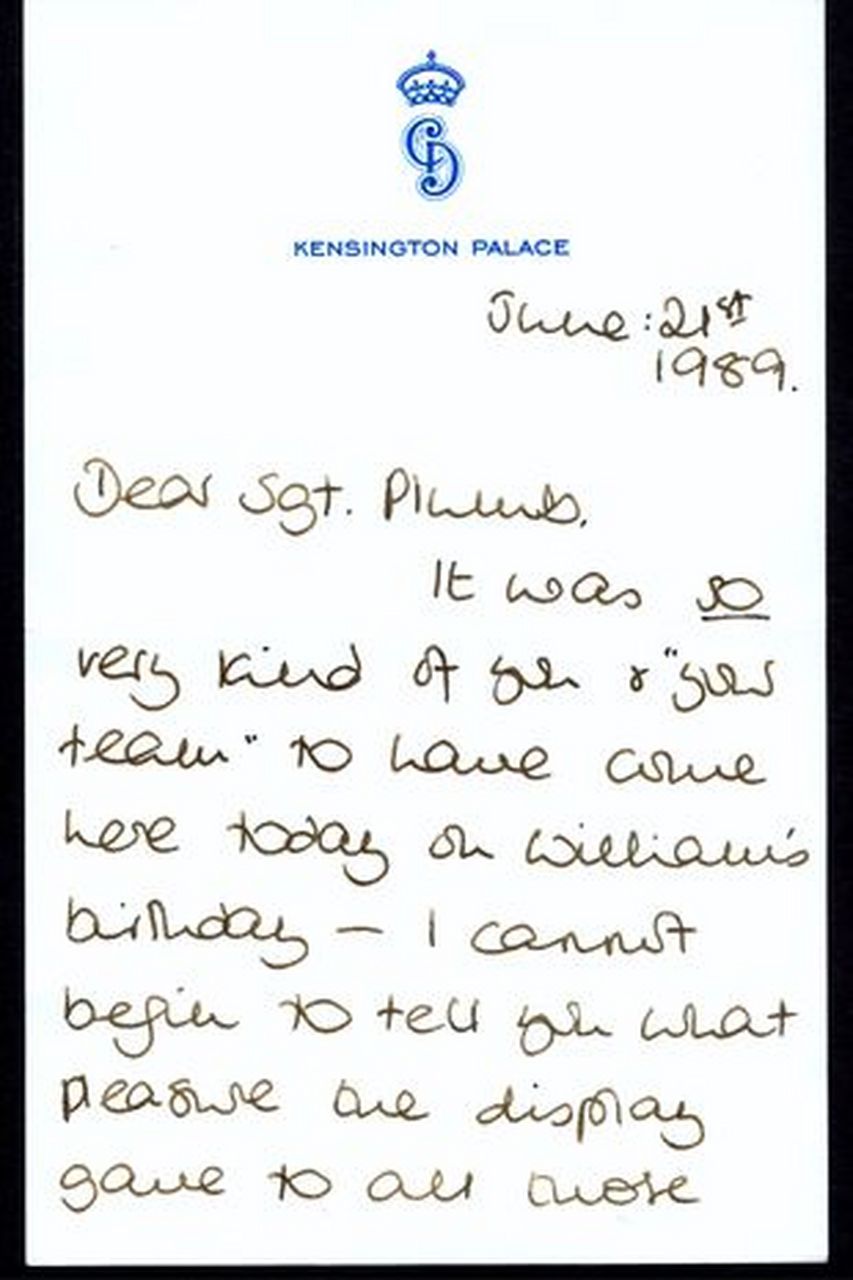 CD
KENSINGTON PALACE
June: 21st
1989.
Dear Sgt. Plumb,
It was so
very kind of you & "your
team" to have come
here today on William's
birthday – I cannot
begin to tell you what
pleasure the display
gave to all those